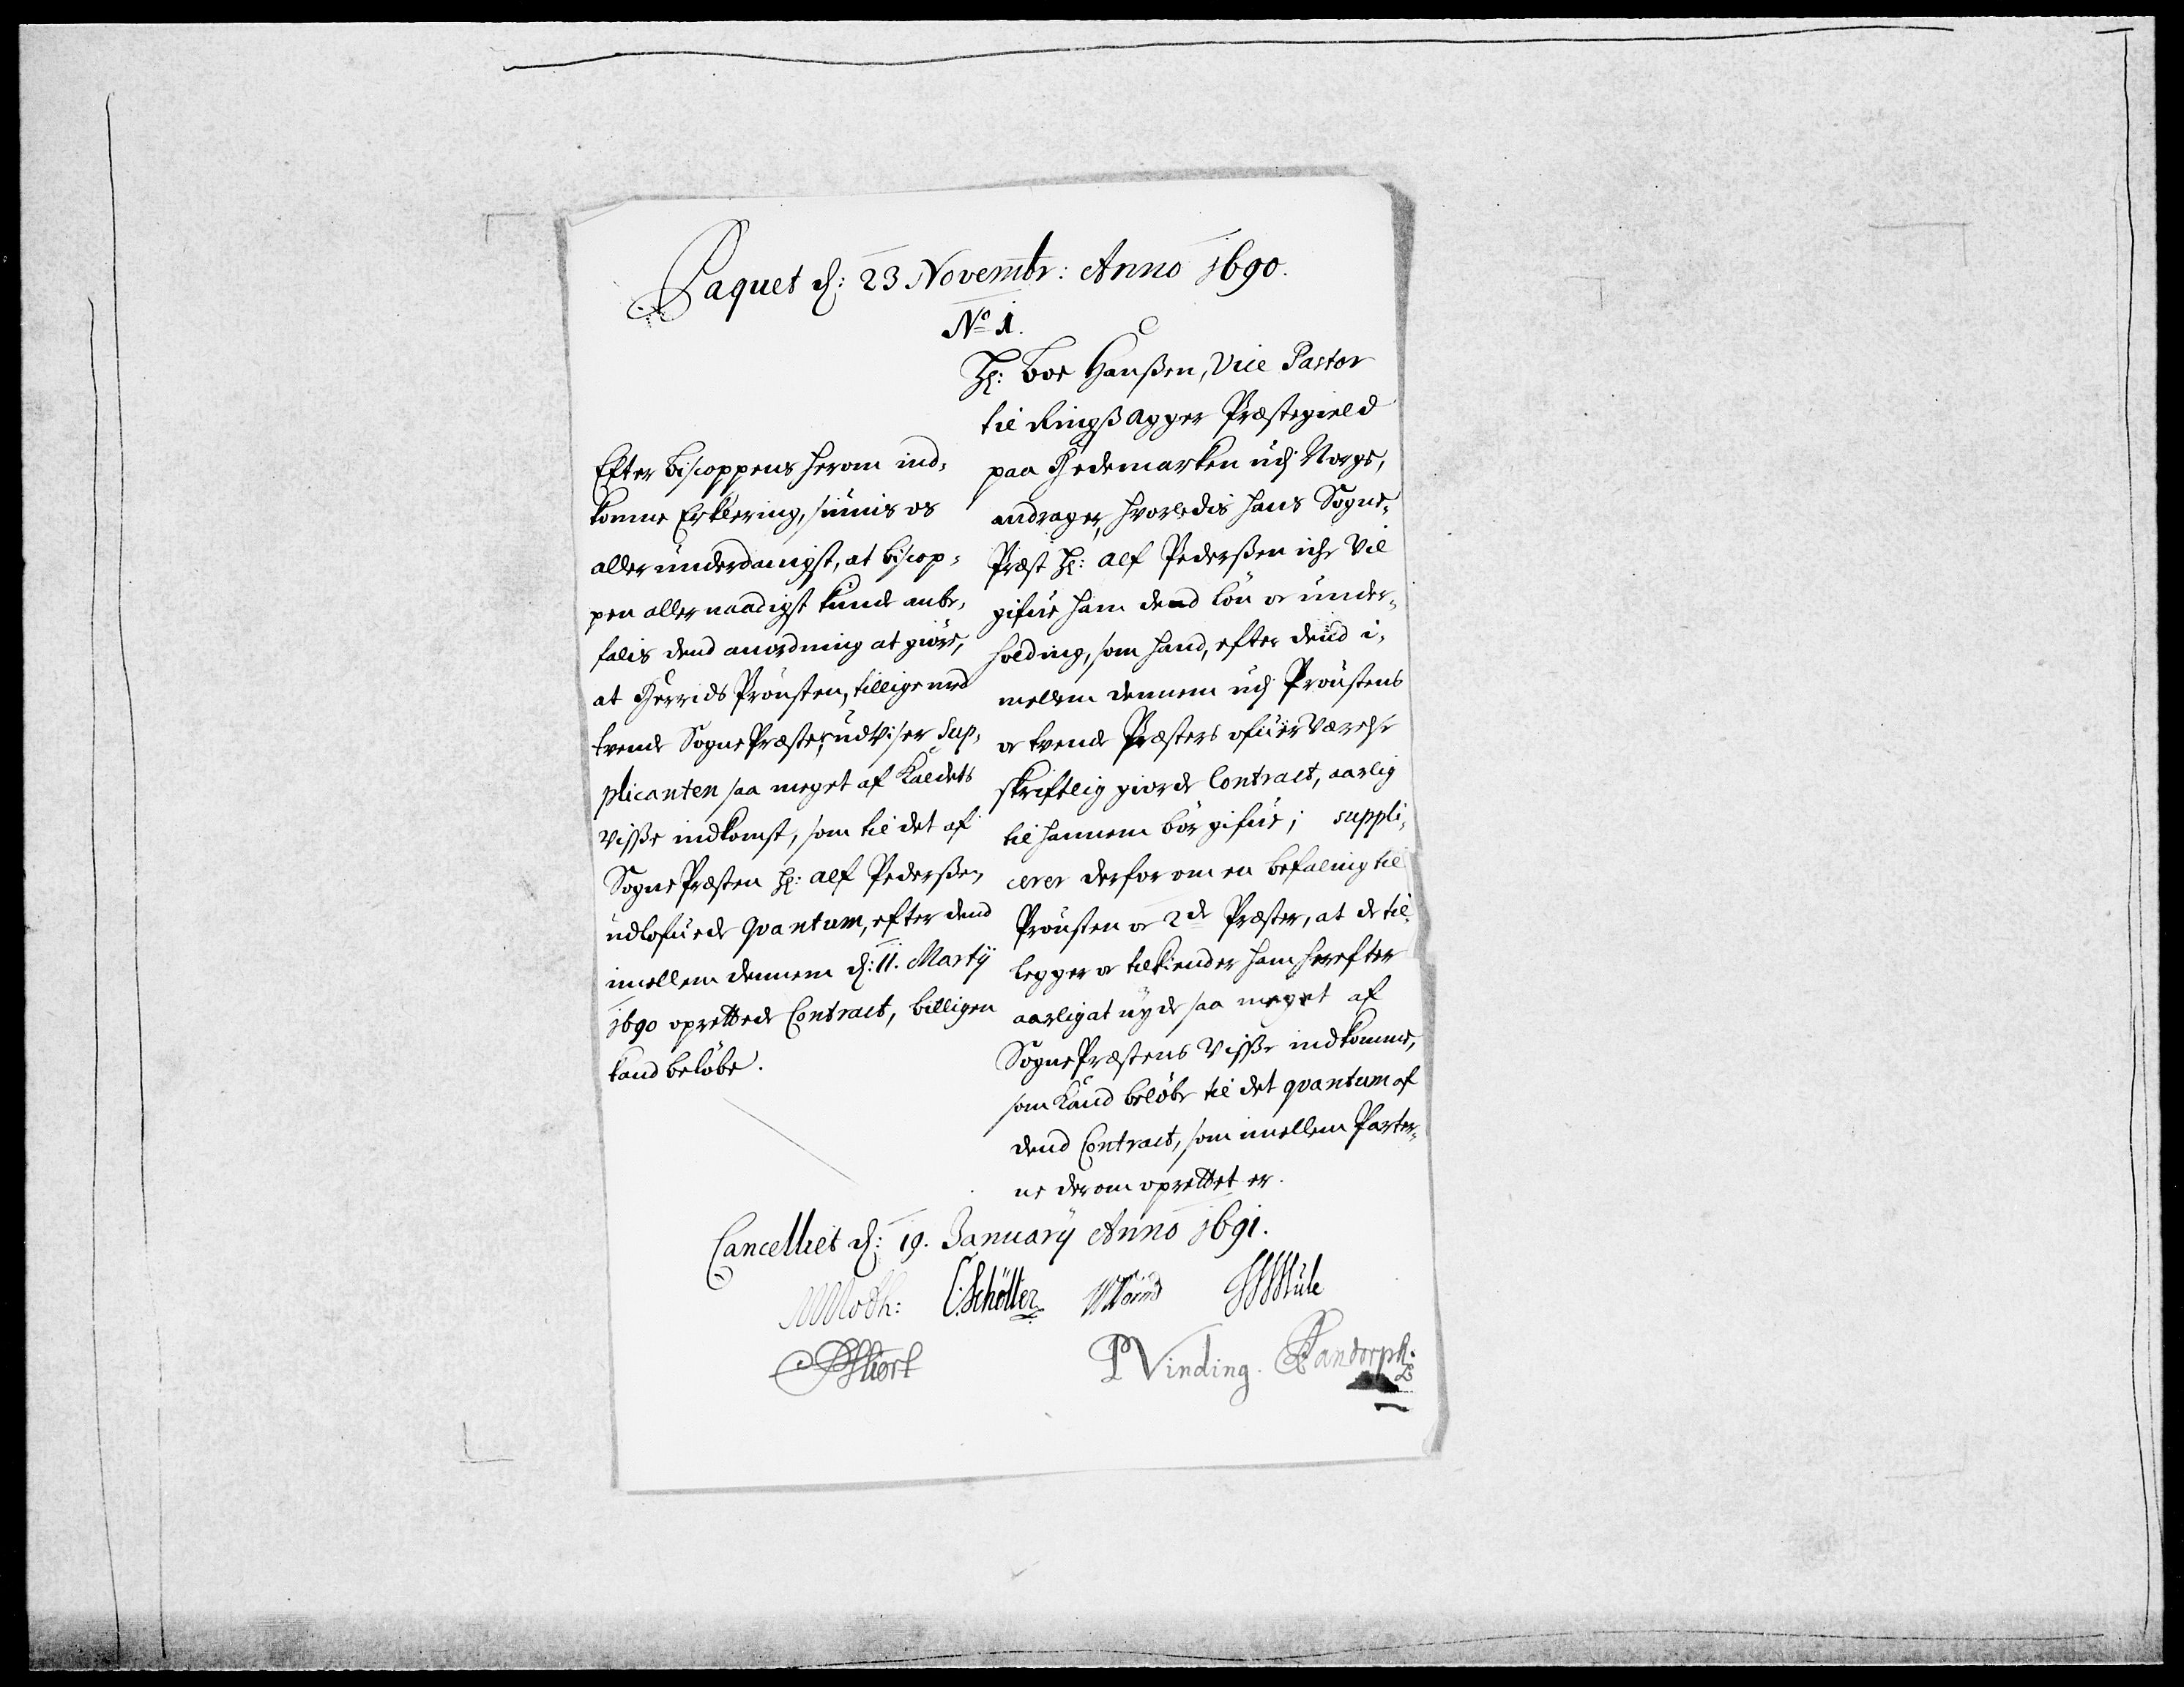 Paquet d: 23 Novembr: Anno 1690.
No 1.
Hr: Boe Hanßen, Vice Pastor
til Ringßagger Præstegield
paa Hedemarken udj Norge,
andrager, hvorledis hans Sogne-
Præst Hr: Alf Pederßen iche vil
gifue ham dend løn oc under-
holding, som hand, efter dend i-
mellem dennem udj Proustens
oc tvende Præsters ofuerværelse
skriftlig giorde Contract, aarlig
til hannem bør gifue; suppli-
cerer derfor om en befaling til
Prousten oc 2de Præster, at de til-
legger oc tilkiender ham herefter
aarlig at nyde saa meget af
SognePræstens visse indkomme,
som kand beløbe til det qvantum af
dend Contract, som imellem Parter-
ne derom oprettet er.
Efter Biscoppens herom ind-
komne Erklering, siunis os
allerunderdanigst, at biscop-
pen allernaadigst kunde anbe-
falis dend anordning at giøre,
at Herrids Prousten, tillige med
tvende SognePræster, udviser Sup-
plicanten saa meget af Kaldets
visse indkomst, som til det af
SognePræsten Hr: Alf Pederßen
udlofuede qvantum, efter dend
imellem dennem d: 11. Martij
1690 oprettede Contract, billigen
kand beløbe.
Cancelliet d: 19. Januarij Anno 1691.
MMoth: C.Schøller WWorm HHMule
PVinding.